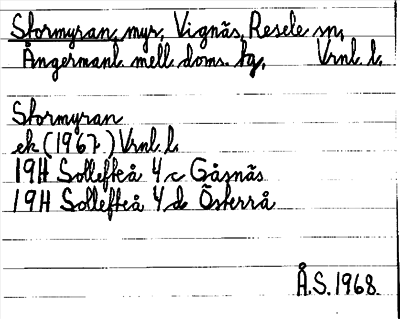 Stormyran, myr, Vignäs, Resele sn,
Ångermanl. mell. doms. hg, Vrnl. l.
Stormyran
ek (1967) Vrnl. l.
19H Sollefteå 4 c Gåsnäs
19H Sollefteå 4 d Österrå
Å.S. 1968